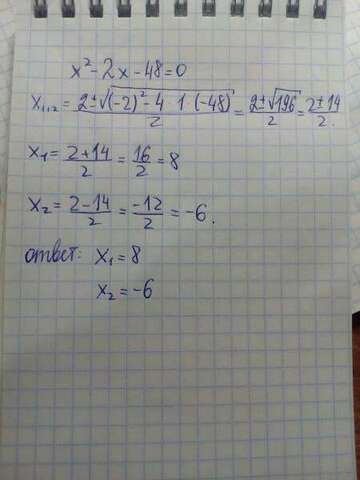 x² - 2x - 48 = 0
x₁,₂ = (2 ± √((-2)² - 4 1 (-48)))/2 = (2 ± √196)/2 = (2 ± 14)/2.
x₁ = (2 + 14)/2 = 16/2 = 8
x₂ = (2 - 14)/2 = -12/2 = -6.
ответ: x₁ = 8
x₂ = -6